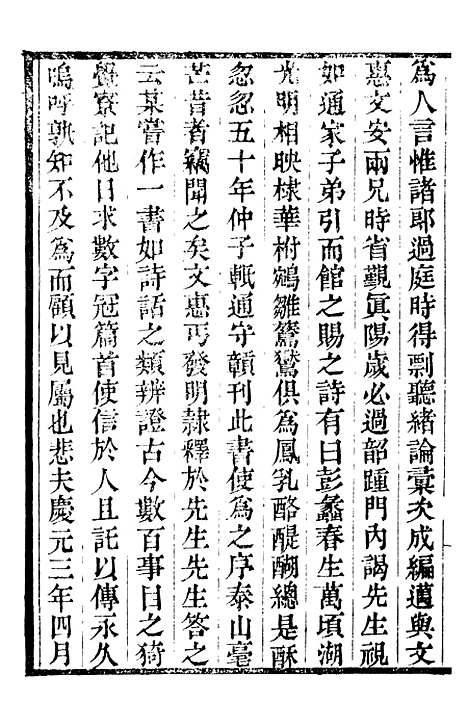 爲人言惟諸郎過庭時得剽聽緒論彙次成編適與文
惠文安兩兄時省觀眞陽歲必過韶踵門內謁先生視
如通家子弟引而館之賜之詩有曰彭蠡春生萬頃湖
光明相映棣華柎鵷雛鸑鷟俱爲鳳乳酪醍醐總是酥
忽忽五十年仲子軧通守贛刊此書使爲之序泰山毫
芒昔者竊聞之矣文惠丐發明隷釋於先生先生答之
云某嘗作一書如詩話之類辨證古今數百事目之猗
覺寮記他日求數字冠篇首使信於人且託以傳永久
嗚呼孰知不及爲而顧以見屬也悲夫慶元三年四月